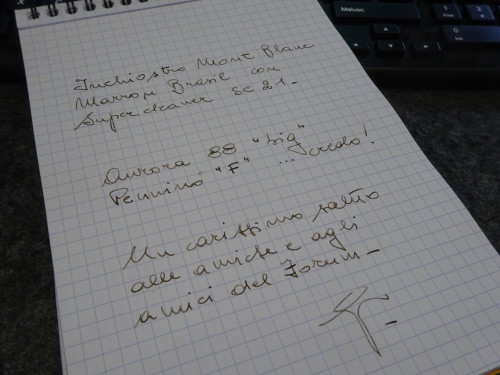 Inchiostro Mont Blanc
Marron Brasil con
Supercleaner SC 21.
Aurora 88 "big"
Pennino "F" ... credo!
Un carissimo saluto
alle amiche e agli
amici del Forum_
Maiusc
1
Fine
2
0
Ins